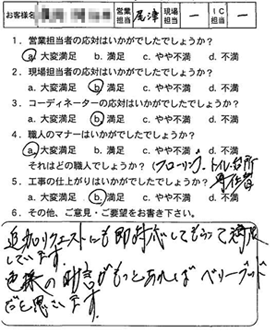 お客様名 営業担当 尾津 現場担当 ー IC担当 ー
1．営業担当者の応対はいかがでしたでしょうか？
a. 大変満足 b. 満足 c. やや不満 d. 不満
2．現場担当者の応対はいかがでしたでしょうか？
a. 大変満足 b. 満足 c. やや不満 d. 不満
3．コーディネーターの応対はいかがでしたでしょうか？
a. 大変満足 b. 満足 c. やや不満 d. 不満
4．職人のマナーはいかがでしたでしょうか？
a. 大変満足 b. 満足 c. やや不満 d. 不満
それはどの職人でしょうか？（フローリング、トイレ、台所
5．工事の仕上がりはいかがでしたでしょうか？
a. 大変満足 b. 満足 c. やや不満 d. 不満
6．その他、ご意見・ご要望をお書き下さい。
追加リクエストにも即対応してもらって満足
しています。
色様の助言がもっとあればベリーグッド
だと思います。